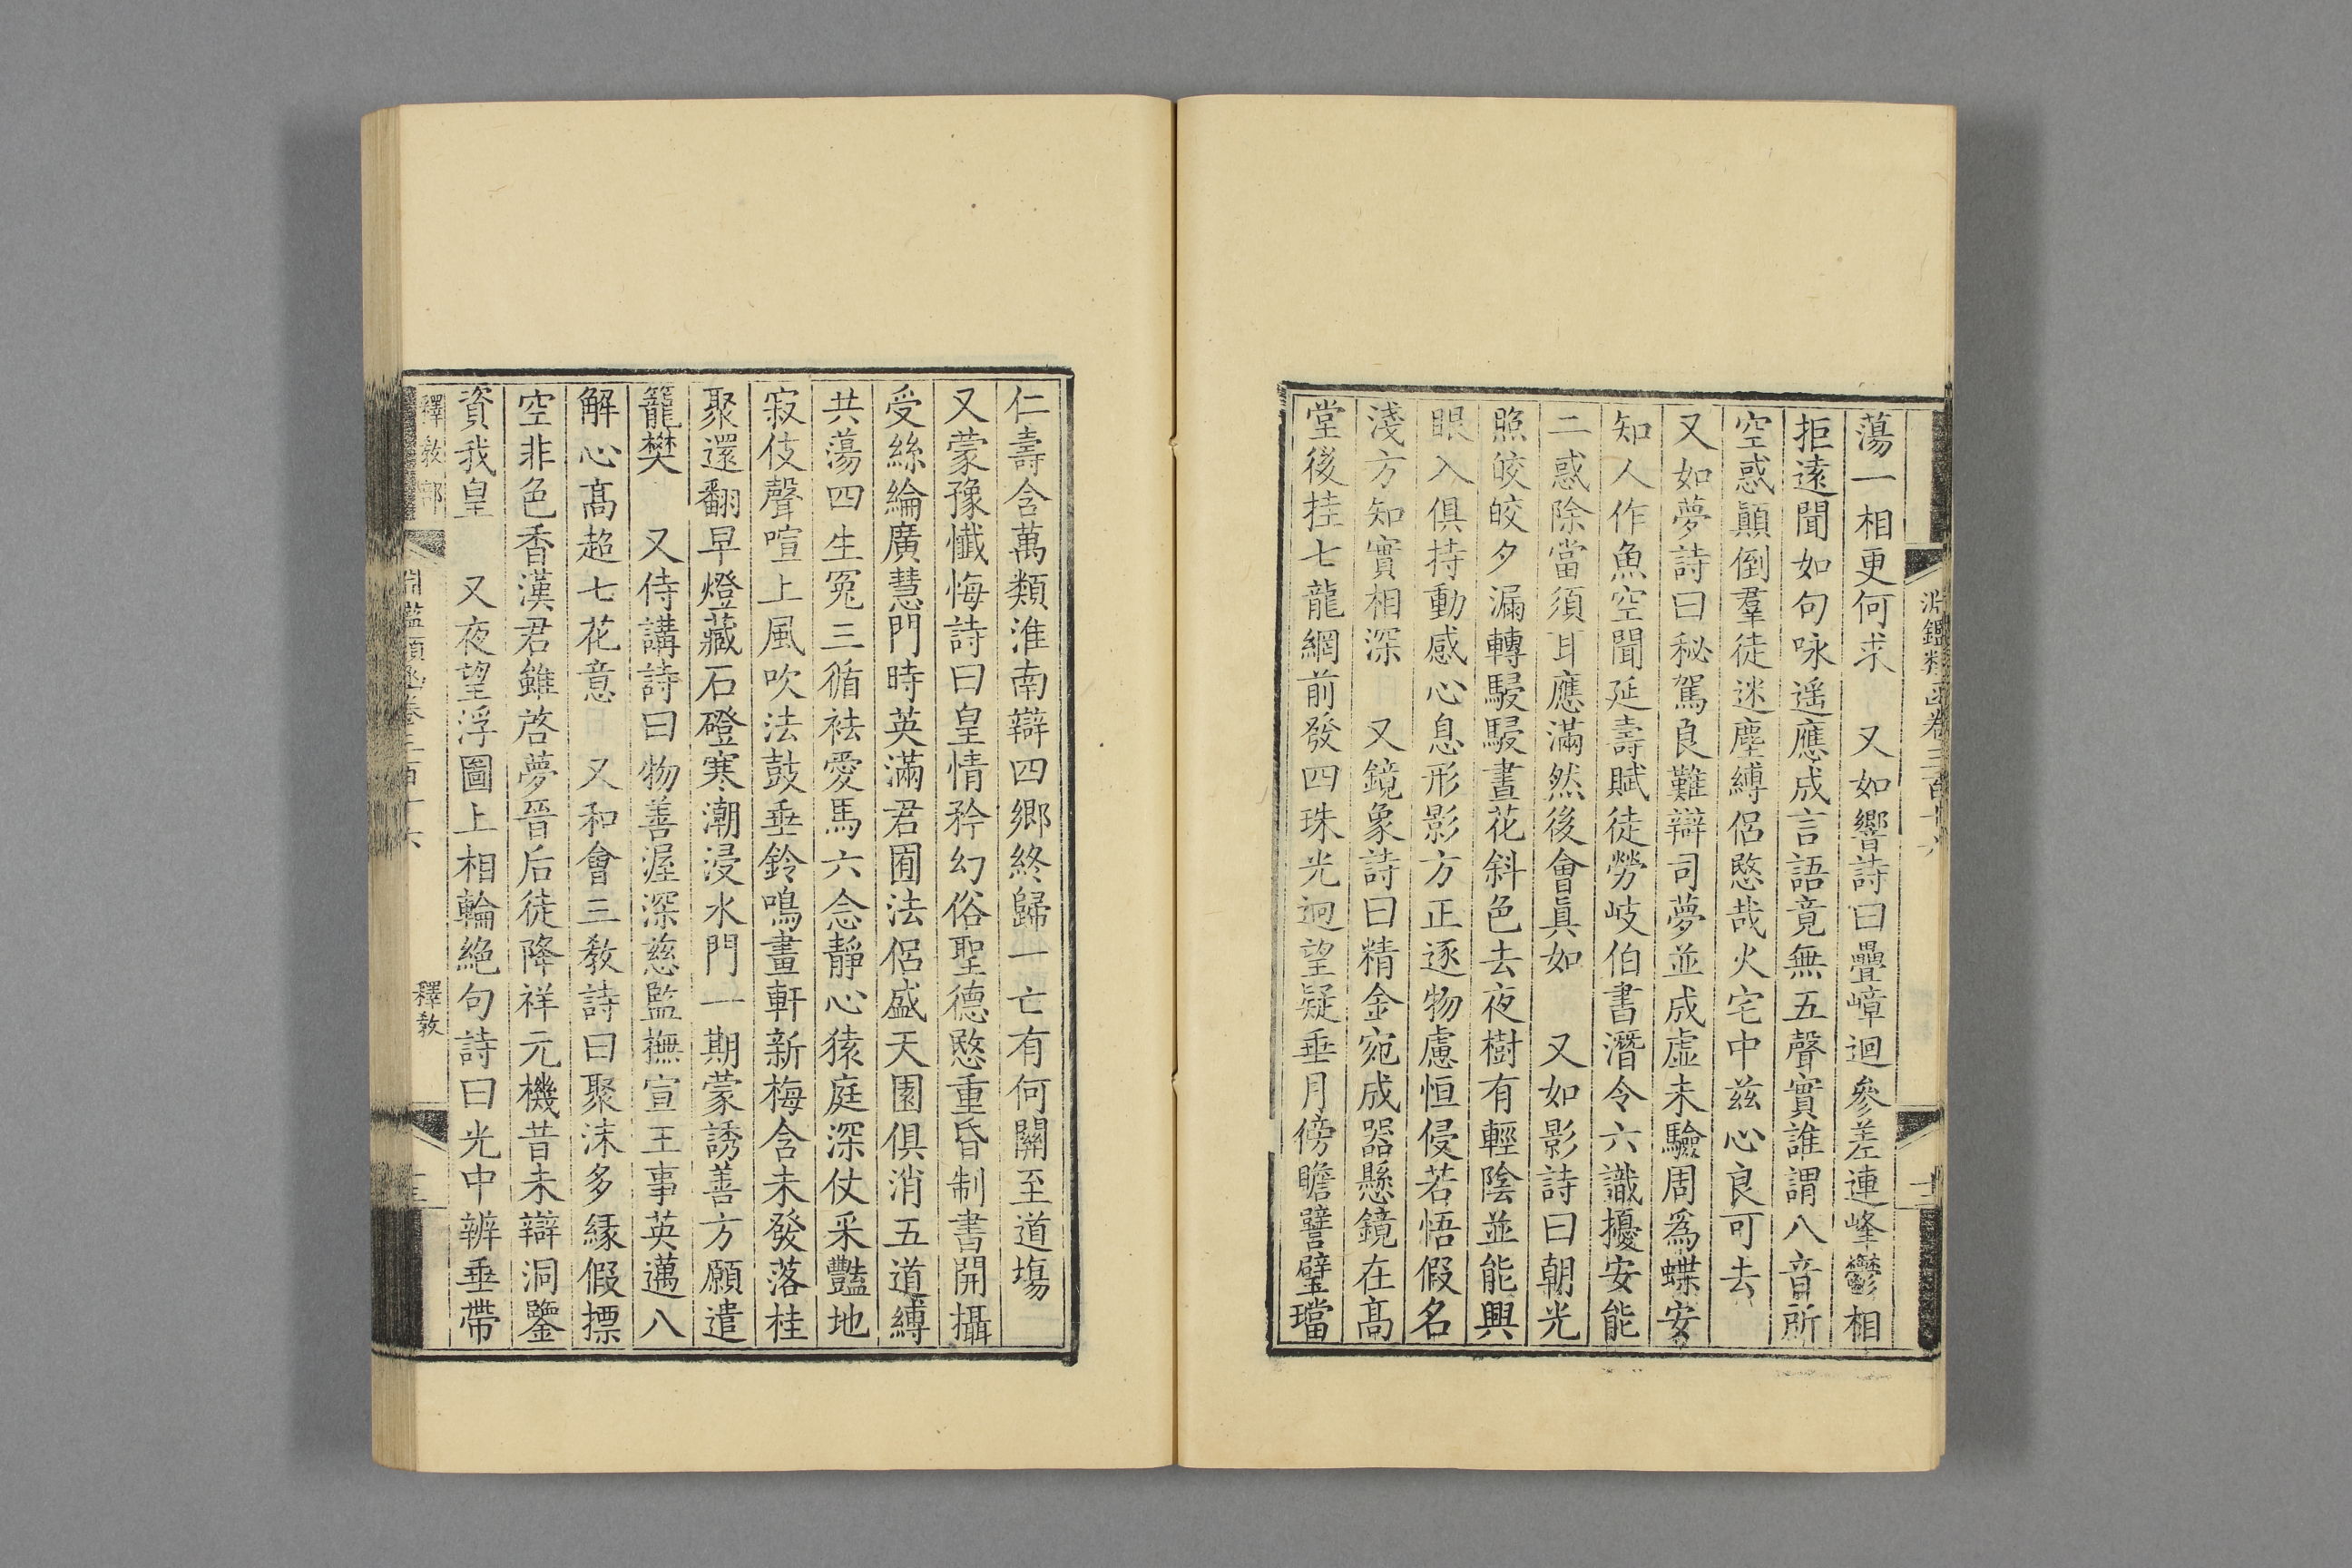 淵鑑類函卷三百十六
十二
蕩一相更何求　又如響詩曰疊嶂迴參差連峰鬱相
拒遠聞如句咏遥應成言語竟無五聲實誰謂八音所
空惑顚倒羣徒迷塵縛侶愍哉火宅中兹心良可去
又如夢詩曰秘駕良難辯司夢並成虛未驗周爲蝶安
知人作魚空聞延壽賦徒勞岐伯書潛令六識擾安能
二惑除當須耳應滿然後會眞如　又如影詩曰朝光
照皎皎夕漏轉駸駸晝花斜色去夜樹有輕陰並能興
眼入俱持動感心息形影方正逐物慮恒侵若悟假名
淺方知實相深　又鏡象詩曰精金宛成器懸鏡在高
堂後挂七龍網前發四珠光迥望疑垂月傍瞻譬璧璫
仁壽含萬類淮南辯四鄉終歸一亡有何關至道塲
又蒙豫懺悔詩曰皇情矜幻俗聖德愍重昏制書開攝
受絲綸廣慧門時英滿君囿法侶盛天園俱消五道縛
共蕩四生冤三循袪愛馬六念靜心猿庭深仗采豔地
寂伎聲喧上風吹法鼓垂鈴鳴畫軒新梅含未發落桂
聚還翻早燈藏石磴寒潮浸水門一期蒙誘善方願遣
籠樊　又侍講詩曰物善渥深慈監撫宣王事英邁八
解心高超七花意　又和會三敎詩曰聚沫多緣假摽
空非色香漢君雖啓夢晉后徒降祥元機昔未辯洞鑒
資我皇　又夜望浮圖上相輪絕句詩曰光中辨垂帶
釋敎部
淵鑑類函卷三百十六
釋敎